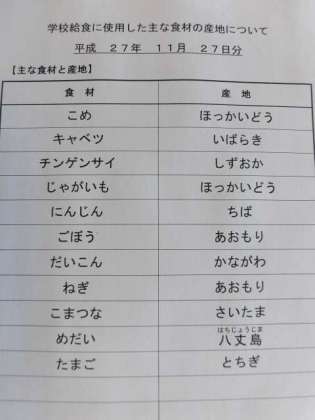 学校給食に使用した主な食材の産地について
平成　２７年　１１月　２７日分
【主な食材と産地】
食　材　産　地
こめ　ほっかいどう
キャベツ　いばらき
チンゲンサイ　しずおか
じゃがいも　ほっかいどう
にんじん　ちば
ごぼう　あおもり
だいこん　かながわ
ねぎ　あおもり
こまつな　さいたま
はちじょうじま
めだい　八丈島
たまご　とちぎ